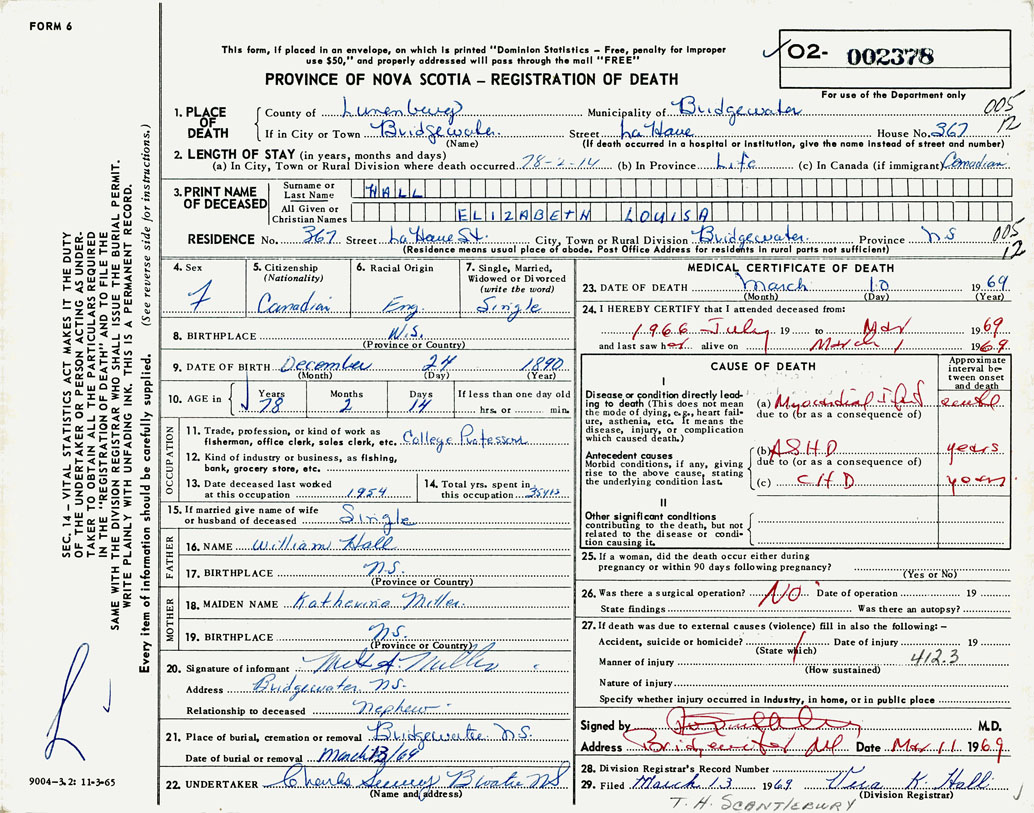 FORM 6
This form, if placed in an envelope, on which is printed "Dominion Statistics – Free, penalty for improper
use $50," and properly addressed will pass through the mail "FREE"
PROVINCE OF NOVA SCOTIA – REGISTRATION OF DEATH
✓ 02- 002378
For use of the Department only
005
12
1. PLACE OF DEATH
County of Lunenburg Municipality of Bridgewater
If in City or Town Bridgewater Street LaHave House No. 367
(Name) (If death occurred in a hospital or institution, give the name instead of street and number)
2. LENGTH OF STAY (in years, months and days)
(a) In City, Town or Rural Division where death occurred 78-2-14 (b) In Province Life (c) In Canada (if immigrant) Canadian
3. PRINT NAME OF DECEASED
Surname or Last Name HALL
All Given or Christian Names ELIZABETH LOUISA
RESIDENCE No. 367 Street LaHave St. City, Town or Rural Division Bridgewater Province NS
005
12
(Residence means usual place of abode. Post Office Address for residents in rural parts not sufficient)
4. Sex
F
5. Citizenship
(Nationality)
Canadian
6. Racial Origin
Eng.
7. Single, Married,
Widowed or Divorced
(write the word)
Single
8. BIRTHPLACE N.S.
(Province or Country)
9. DATE OF BIRTH December 24 1890
(Month) (Day) (Year)
10. AGE in
Years Months Days If less than one day old
78 2 14 hrs. or min.
OCCUPATION
11. Trade, profession, or kind of work as
fisherman, office clerk, sales clerk, etc. College Professor
12. Kind of industry or business, as fishing,
bank, grocery store, etc.
13. Date deceased last worked
at this occupation 1954
14. Total yrs. spent in
this occupation
15. If married give name of wife
or husband of deceased Single
FATHER
16. NAME William Hall
17. BIRTHPLACE NS.
(Province or Country)
MOTHER
18. MAIDEN NAME Katherina Miller
19. BIRTHPLACE NS.
(Province or Country)
20. Signature of informant
Address Bridgewater NS.
Relationship to deceased Nephew
21. Place of burial, cremation or removal Bridgewater NS.
Date of burial or removal March 13/69
22. UNDERTAKER Charles NS
(Name and address)
MEDICAL CERTIFICATE OF DEATH
23. DATE OF DEATH March 10 1969
(Month) (Day) (Year)
24. I HEREBY CERTIFY that I attended deceased from:
1966 July 19 to Mar 1969
and last saw her alive on March 1 1969
CAUSE OF DEATH
Approximate interval between onset and death
I
Disease or condition directly leading to death (This does not mean
the mode of dying, e.g., heart failure, asthenia, etc. It means the
disease, injury, or complication
which caused death.)
(a) Myocardial Inf acute
due to (or as a consequence of)
Antecedent causes
Morbid conditions, if any, giving
rise to the above cause, stating
the underlying condition last.
(b) ASHD years
due to (or as a consequence of)
(c) CHD years
II
Other significant conditions
contributing to the death, but not
related to the disease or condition causing it.
25. If a woman, did the death occur either during
pregnancy or within 90 days following pregnancy?
(Yes or No)
26. Was there a surgical operation? No Date of operation 19
State findings Was there an autopsy?
27. If death was due to external causes (violence) fill in also the following:–
Accident, suicide or homicide? Date of injury 19
(State which)
Manner of injury 412.3
(How sustained)
Nature of injury
Specify whether injury occurred in industry, in home, or in public place
Signed by M.D.
Address Bridgewater NS Date Mar 11 1969
28. Division Registrar's Record Number
29. Filed March 13 1969 Vera K. Hall
(Division Registrar)
T. H. SCANTLEBURY
SEC. 14 – VITAL STATISTICS ACT MAKES IT THE DUTY
OF THE UNDERTAKER OR PERSON ACTING AS UNDER-
TAKER TO OBTAIN ALL THE PARTICULARS REQUIRED
IN THE "REGISTRATION OF DEATH" AND TO FILE THE
SAME WITH THE DIVISION REGISTRAR WHO SHALL ISSUE THE BURIAL PERMIT.
WRITE PLAINLY WITH UNFADING INK. THIS IS A PERMANENT RECORD.
Every item of information should be carefully supplied. (See reverse side for instructions.)
9004–3.2: 11-3-65